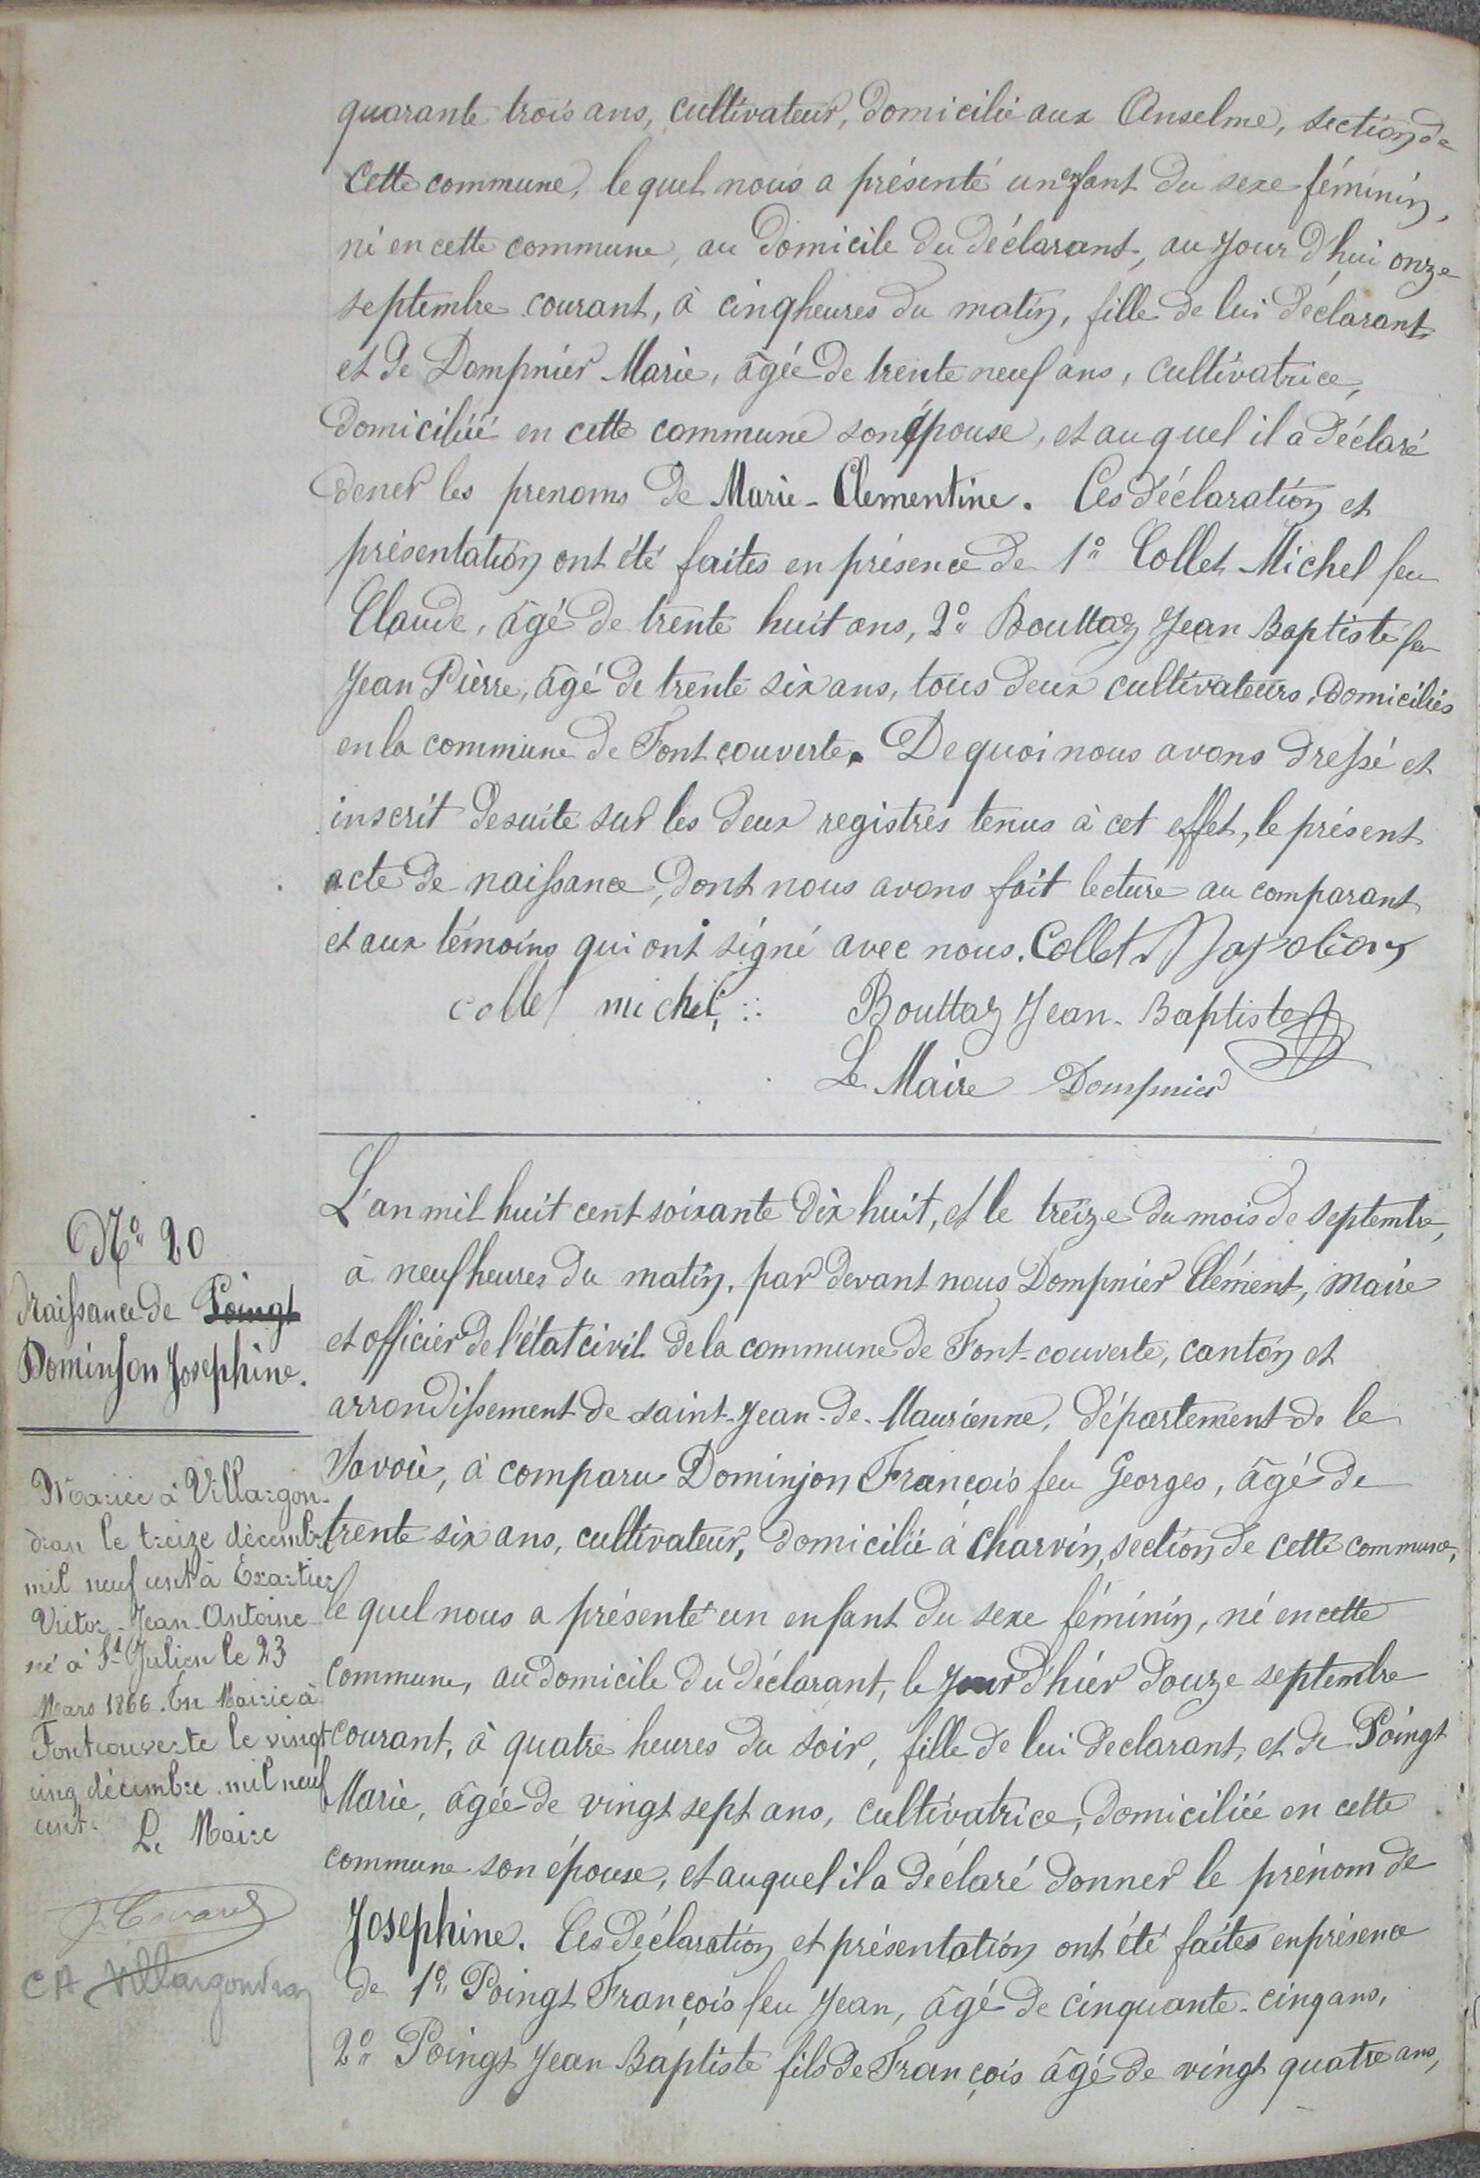 quarante trois ans, cultivateur, domicilié aux Anselme, section de
cette commune, le quel nous a présenté un enfant du sexe féminin,
né en cette commune, au domicile du déclarant, au jour d'hui onze
septembre courant, à cinq heures du matin, fille de lui déclarant
et de Dompnier Marie, âgée de trente neuf ans, cultivatrice,
domiciliée en cette commune son épouse, et au quel il a déclaré
doner les prenoms de Marie-Clementine. Ces déclaration et
présentation ont été faites en présence de 1° Collet Michel feu
Claude, âgé de trente huit ans, 2° Bouttaz Jean Baptiste feu
Jean Pierre, âgé de trente six ans, tous deux cultivateurs, domiciliés
en la commune de Font couverte. De quoi nous avons dressé et
inscrit desuite sur les deux registres tenus à cet effet, le présent
acte de naissance, dont nous avons fait lecture au comparant
et aux témoins qui ont signé avec nous. Collet Napoléon
collet michel
Bouttaz Jean-Baptiste
Le Maire Dompnier
N° 20
Naissance de Poingt
Dominjon Josephine.
Mariée à Villargon-
dran le treize décembre
mil neuf cent à Exartier
Victor-Jean-Antoine
né à St Julien le 23
Mars 1866. En Mairie à
Fontcouverte le vingt
cinq décembre mil neuf
cent.
Le Maire
CA Villargondran
L'an mil huit cent soixante dix huit, et le treize du mois de septembre,
à neuf heures du matin, par devant nous Dompnier Clément, maire
et officier de l'état civil de la commune de Font-couverte, canton et
arrondissement de saint-Jean-de-Maurienne, département de le
Savoie, à comparu Dominjon François feu Georges, âgé de
trente six ans, cultivateur, domicilié à Charvin, section de cette commune,
le quel nous a présenté un enfant du sexe féminin, né en cette
commune, au domicile du déclarant, le jour d'hier douze septembre
courant, à quatre heures du soir, fille de lui declarant, et de Poingt
Marie, âgée de vingt sept ans, cultivatrice, domiciliée en cette
commune son épouse, et auquel il a déclaré donner le prénom de
Josephine. Ces déclaration et présentation ont été faites en présence
de 1° Poingt François feu Jean, âgé de cinquante-cinq ans,
2° Poingt Jean Baptiste fils de François âgé de vingt quatre ans,